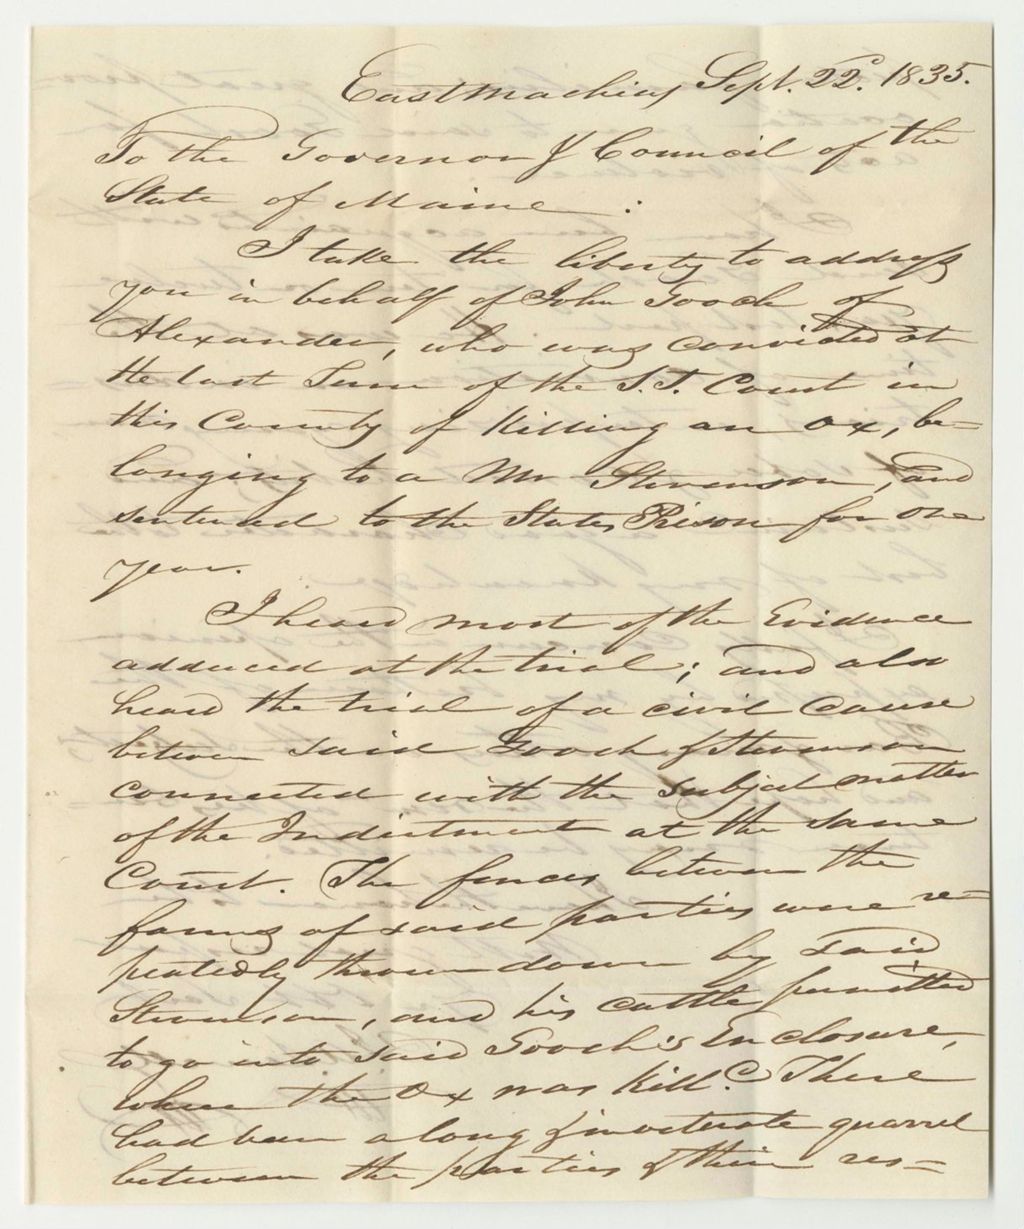 Eastmachias Sept. 22d. 1835.
To the Governor & Council of the
State of Maine :
I take the liberty to address
you in behalf of John Gooch of
Alexander, who was convicted at
the last Term of the S. J. Court in
this County of Killing an Ox, be=
longing to a Mr Stevenson, and
sentenced to the States Prison for one
year.
I heard most of the Evidence
adduced at the trial; and also
heard the trial of a civil cause
between said Gooch & Stevenson
connected with the subject matter
of the Indictment at the same
Court. The fences between the
farms of said parties were re=
peatedly thrown down by said
Stevenson, and his cattle permitted
to go into said Gooch's Enclosure,
where the Ox was Kill.d There
had been a long & inveterate quarrel
between the parties & their res=